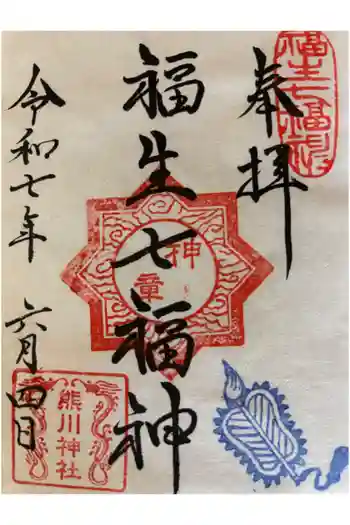 奉拝
福生七福神
令和七年 六月四日
福生七福神
神
章
熊川神社